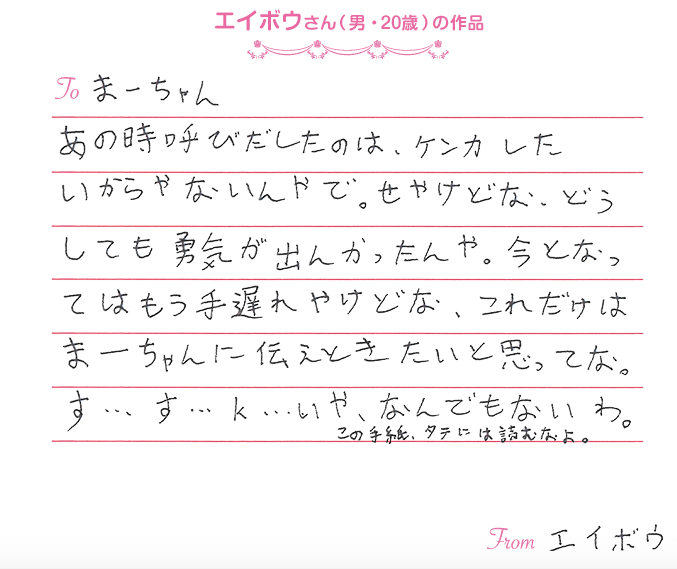 エイボウさん（男・20歳）の作品
To まーちゃん
あの時呼びだしたのは、ケンカした
いからやないんやで。せやけどな、どう
しても勇気が出んかったんや。今となっ
てはもう手遅れやけどな、これだけは
まーちゃんに伝えときたいと思ってな。
す…、す…k…いや、なんでもないわ。
この手紙、タテには読むなよ。
From エイボウ